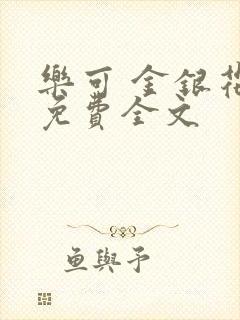 樂可 金銀花
免費全文
魚與予